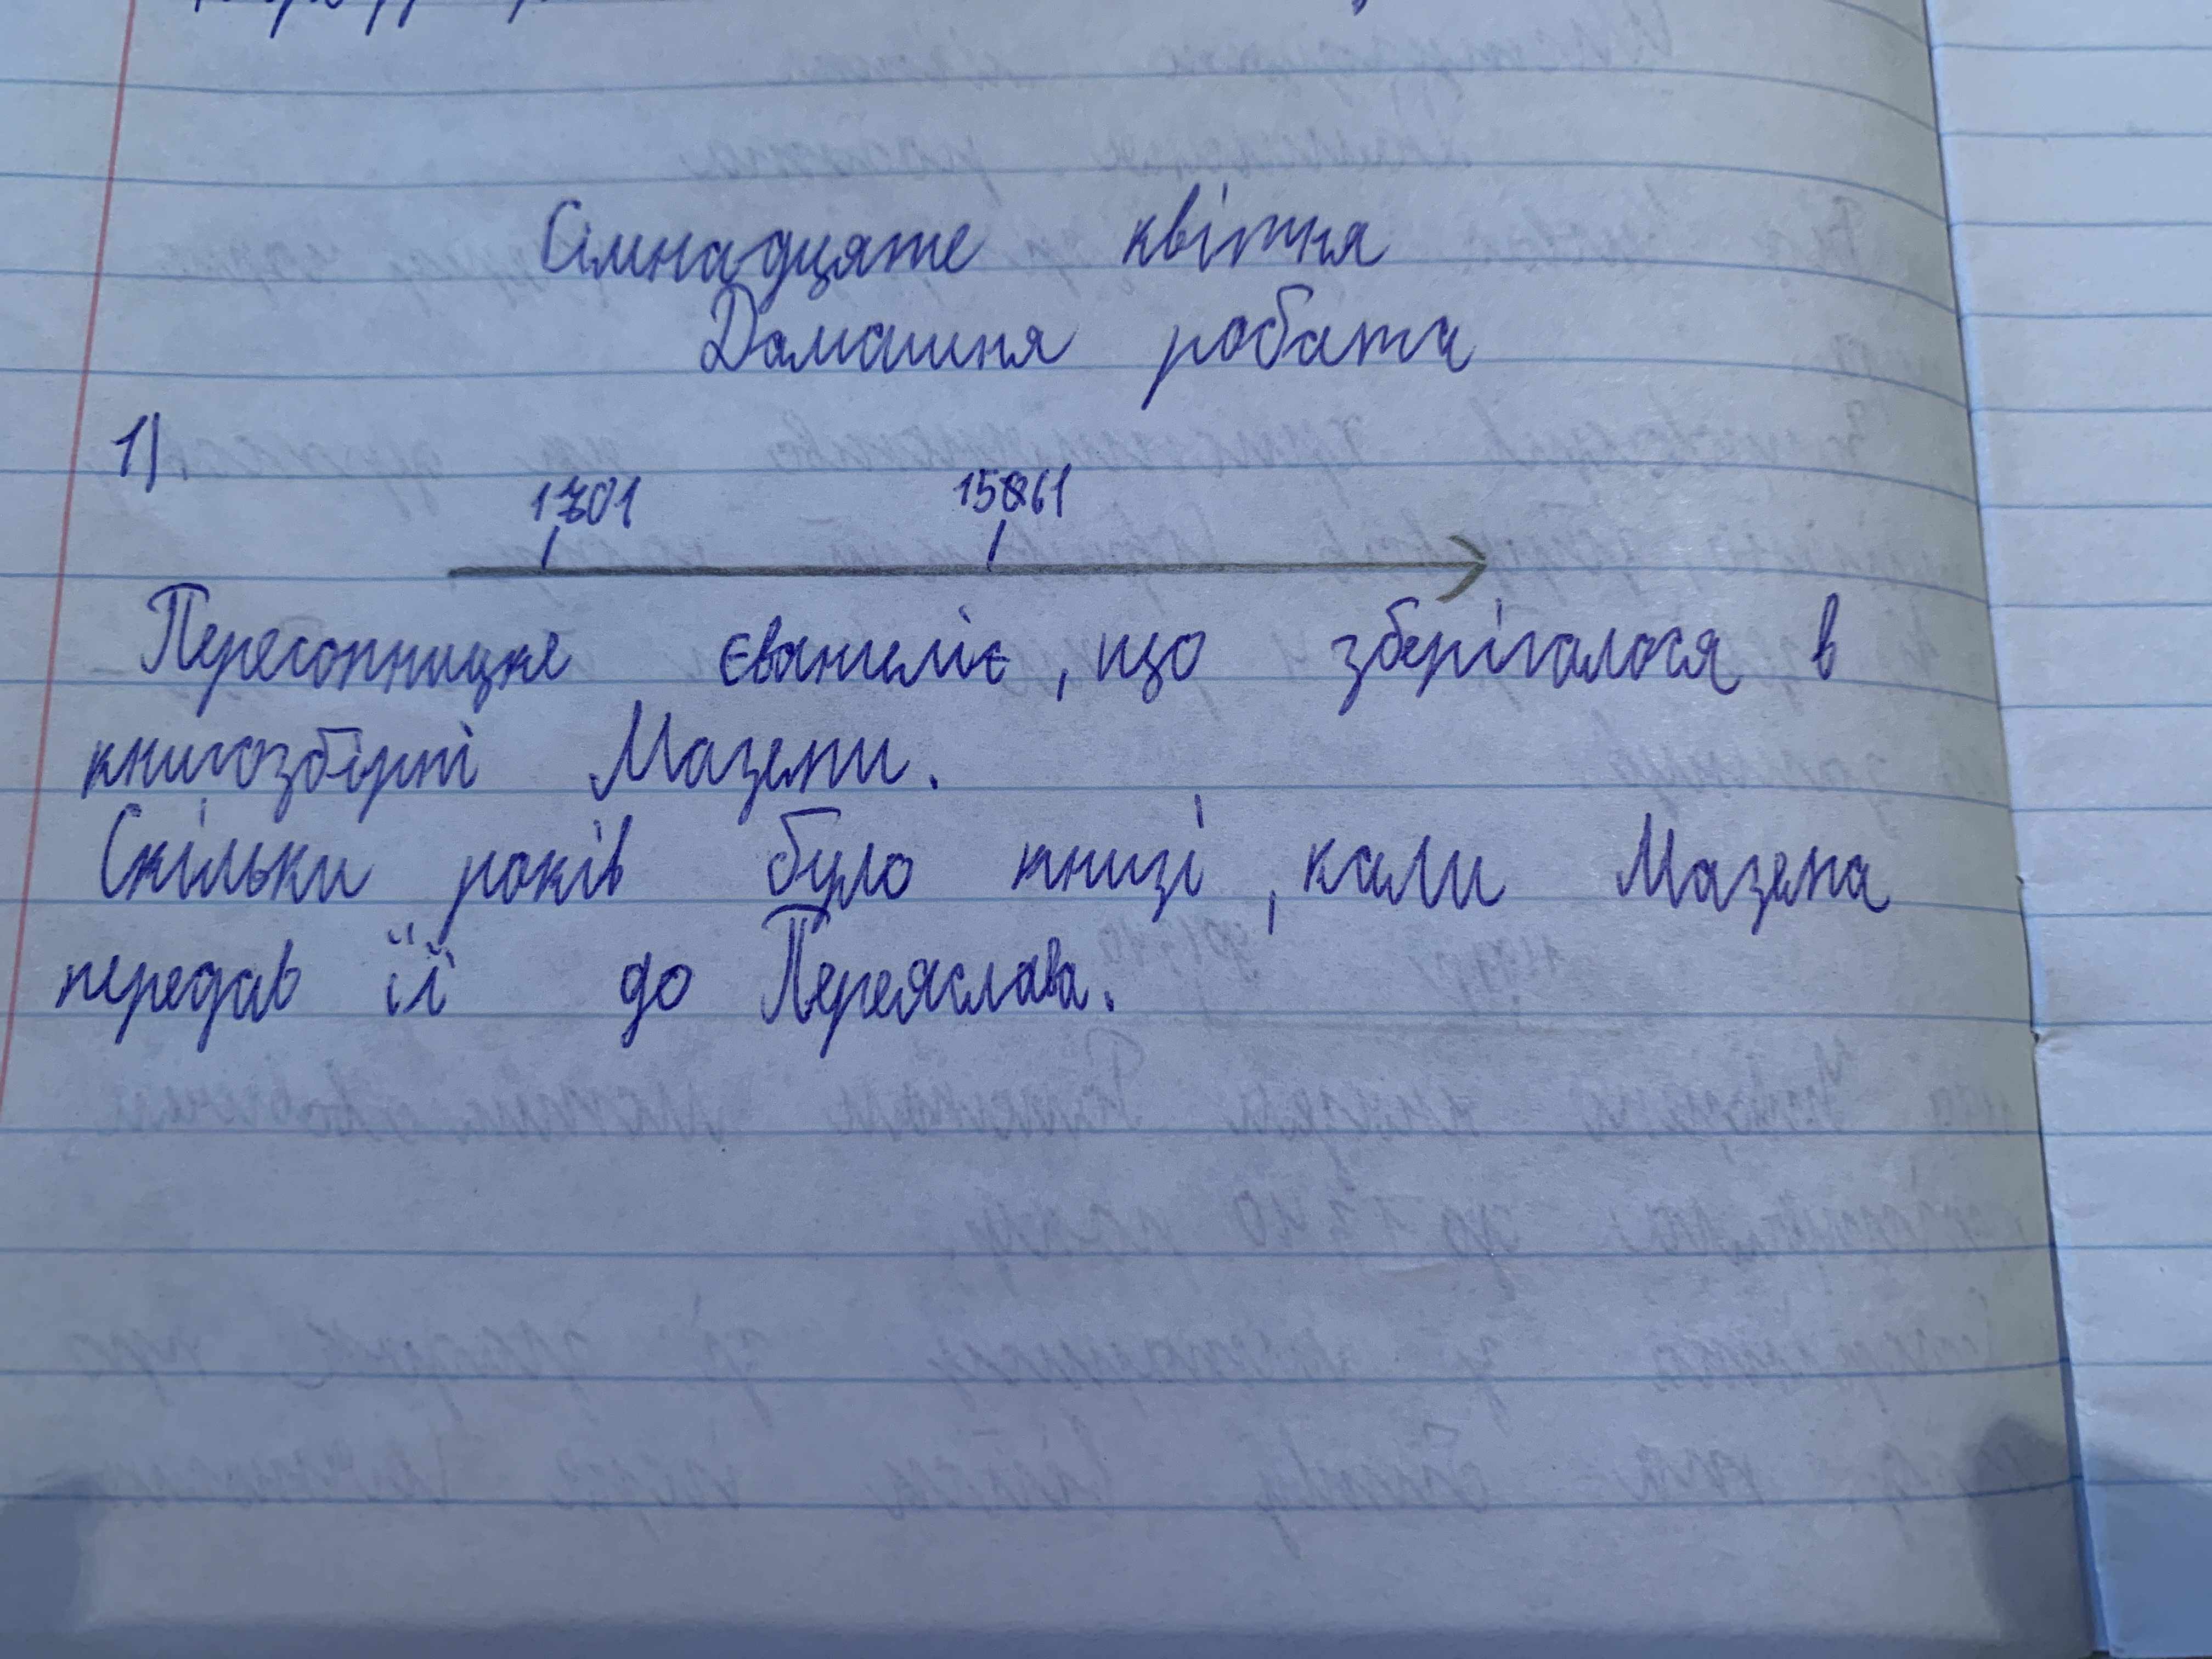 Сімнадцяте квітня
Домашня робота
1)
1701 1561
Пересопницке Євангеліє, що зберігалося в
книгозбірні Мазепи.
Скільки років було книзі, коли Мазепа
передав її до Переяслава.